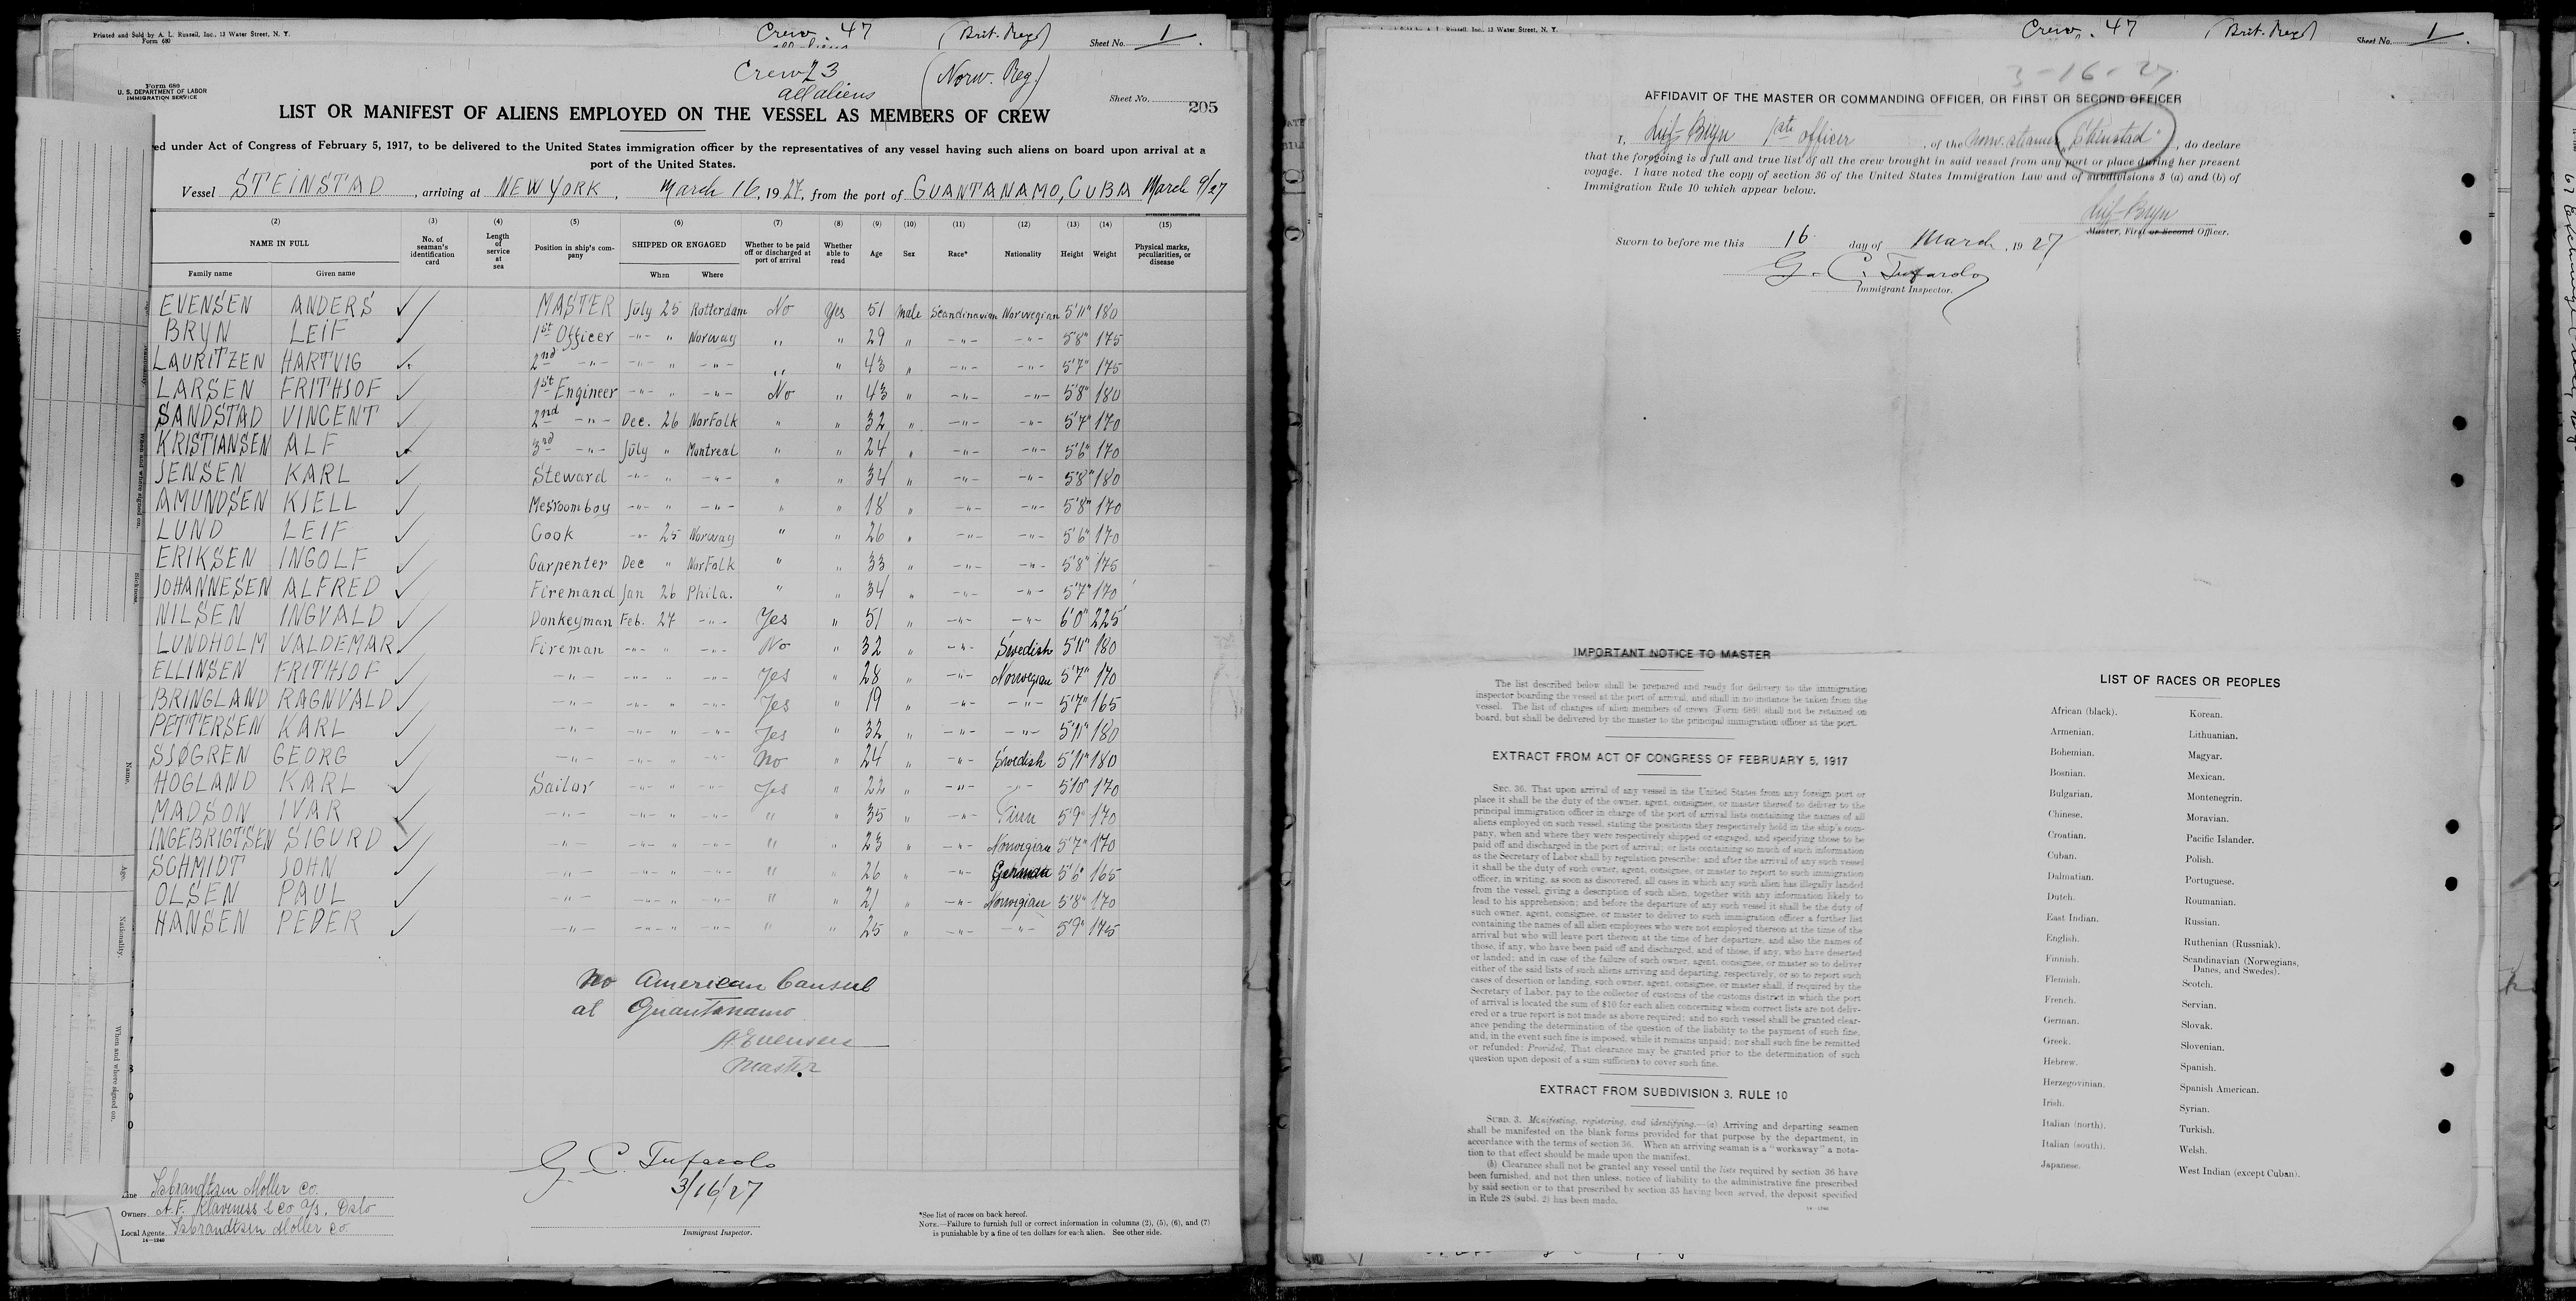 Printed and Sold by A. L. Russell, Inc., 13 Water Street, N. Y.
Form 680
Crew 47 (Brit. Reg) Sheet No. 1
Crew 23 (Norw. Reg.)
all aliens
Sheet No. 205
Form 680
U. S. DEPARTMENT OF LABOR
IMMIGRATION SERVICE
LIST OR MANIFEST OF ALIENS EMPLOYED ON THE VESSEL AS MEMBERS OF CREW
ed under Act of Congress of February 5, 1917, to be delivered to the United States immigration officer by the representatives of any vessel having such aliens on board upon arrival at a
port of the United States.
Vessel STEINSTAD, arriving at NEW YORK, March 16, 1927, from the port of GUANTANAMO, CUBA March 9/27
(2) (3) (4) (5) (6) (7) (8) (9) (10) (11) (12) (13) (14) (15)
NAME IN FULL No. of seaman's identification card Length of service at sea Position in ship's company SHIPPED OR ENGAGED Whether to be paid off or discharged at port of arrival Whether able to read Age Sex Race* Nationality Height Weight Physical marks, peculiarities, or disease
Family name Given name When Where
EVENSEN ANDERS ✓ MASTER July 25 Rotterdam No Yes 51 Male Scandinavian Norwegian 5'11" 180
BRYN LEIF ✓ 1st Officer -"- " Norway " " 29 " -"- -"- 5'8" 175
LAURITZEN HARTVIG ✓ 2nd -"- -"- " -"- " " 43 " -"- -"- 5'7" 175
LARSEN FRITHJOF ✓ 1st Engineer -"- " -"- No " 43 " -"- -"- 5'8" 180
SANDSTAD VINCENT ✓ 2nd -"- Dec. 26 Norfolk " " 32 " -"- -"- 5'7" 170
KRISTIANSEN ALF ✓ 3rd -"- July " Montreal " " 24 " -"- -"- 5'6" 170
JENSEN KARL ✓ Steward -"- " -"- " " 34 " -"- -"- 5'8" 180
AMUNDSEN KJELL ✓ Messroomboy -"- " -"- " " 18 " -"- -"- 5'8" 170
LUND LEIF ✓ Cook -"- 25 Norway " " 26 " -"- -"- 5'6" 170
ERIKSEN INGOLF ✓ Carpenter Dec " Norfolk " " 33 " -"- -"- 5'8" 175
JOHANNESEN ALFRED ✓ Firemand Jan 26 Phila. " " 34 " -"- -"- 5'7" 170
NILSEN INGVALD ✓ Donkeyman Feb. 27 -"- Yes " 51 " -"- -"- 6'0" 225
LUNDHOLM VALDEMAR ✓ Fireman -"- " -"- No " 32 " -"- Swedish 5'11" 180
ELLINSEN FRITHJOF ✓ -"- -"- " -"- Yes " 28 " -"- Norwegian 5'7" 170
BRINGLAND RAGNVALD ✓ -"- -"- " -"- Yes " 19 " -"- -"- 5'7" 165
PETTERSEN KARL ✓ -"- -"- " -"- Yes " 32 " -"- -"- 5'11" 180
SJØGREN GEORG ✓ -"- -"- " -"- No " 24 " -"- Swedish 5'11" 180
HOGLAND KARL ✓ Sailor -"- " -"- Yes " 22 " -"- -"- 5'10" 170
MADSON IVAR ✓ -"- -"- " -"- " " 35 " -"- Finn 5'9" 170
INGEBRIGTSEN SIGURD ✓ -"- -"- " -"- " " 23 " -"- Norwegian 5'7" 170
SCHMIDT JOHN ✓ -"- -"- " -"- " " 26 " -"- 5'6" 165
OLSEN PAUL ✓ -"- -"- " -"- " " 21 " -"- Norwegian 5'8" 170
HANSEN PEDER ✓ -"- -"- " -"- " " 25 " -"- -"- 5'9" 175
No American Consul
at Guantanamo
A. Evensen
Master
G. C. Tufarolo
3/16/27
Immigrant Inspector.
Line Isbrandtsen Moller Co.
Owners A. F. Klaveness & Co A/S, Oslo
Local Agents Isbrandtsen Moller Co.
14—1240
*See list of races on back hereof.
NOTE.—Failure to furnish full or correct information in columns (2), (5), (6), and (7)
is punishable by a fine of ten dollars for each alien. See other side.
Name.
Age.
Nationality.
When and where signed on.
Crew. 47 (Brit. Reg) Sheet No. 1
3-16-27
AFFIDAVIT OF THE MASTER OR COMMANDING OFFICER, OR FIRST OR SECOND OFFICER
I, Leif Bryn 1st officer, of the Norw. steamer "Steinstad", do declare
that the foregoing is a full and true list of all the crew brought in said vessel from any port or place during her present
voyage. I have noted the copy of section 36 of the United States Immigration Law and of subdivisions 3 (a) and (b) of
Immigration Rule 10 which appear below.
Leif Bryn
Master, First or Second Officer.
Sworn to before me this 16 day of March, 1927
G. C. Tufarolo
Immigrant Inspector.
IMPORTANT NOTICE TO MASTER
The list described below shall be prepared and ready for delivery to the immigration
inspector boarding the vessel at the port of arrival, and shall in no instance be taken from the
vessel. The list of changes of alien members of crews (Form 689) shall not be retained on
board, but shall be delivered by the master to the principal immigration officer at the port.
EXTRACT FROM ACT OF CONGRESS OF FEBRUARY 5, 1917
SEC. 36. That upon arrival of any vessel in the United States from any foreign port or
place it shall be the duty of the owner, agent, consignee, or master thereof to deliver to the
principal immigration officer in charge of the port of arrival lists containing the names of all
aliens employed on such vessel, stating the positions they respectively hold in the ship's com-
pany, when and where they were respectively shipped or engaged, and specifying those to be
paid off and discharged in the port of arrival; or lists containing so much of such information
as the Secretary of Labor shall by regulation prescribe; and after the arrival of any such vessel
it shall be the duty of such owner, agent, consignee, or master to report to such immigration
officer, in writing, as soon as discovered, all cases in which any such alien has illegally landed
from the vessel, giving a description of such alien, together with any information likely to
lead to his apprehension; and before the departure of any such vessel it shall be the duty of
such owner, agent, consignee, or master to deliver to such immigration officer a further list
containing the names of all alien employees who were not employed thereon at the time of the
arrival but who will leave port thereon at the time of her departure, and also the names of
those, if any, who have been paid off and discharged, and of those, if any, who have deserted
or landed; and in case of the failure of such owner, agent, consignee, or master so to deliver
either of the said lists of such aliens arriving and departing, respectively, or so to report such
cases of desertion or landing, such owner, agent, consignee, or master, shall, if required by the
Secretary of Labor, pay to the collector of customs of the customs district in which the port
of arrival is located the sum of $10 for each alien concerning whom correct lists are not deliv-
ered or a true report is not made as above required; and no such vessel shall be granted clear-
ance pending the determination of the question of the liability to the payment of such fine,
and, in the event such fine is imposed, while it remains unpaid; nor shall such fine be remitted
or refunded: Provided, That clearance may be granted prior to the determination of such
question upon deposit of a sum sufficient to cover such fine.
EXTRACT FROM SUBDIVISION 3, RULE 10
SUBD. 3. Manifesting, registering, and identifying.—(a) Arriving and departing seamen
shall be manifested on the blank forms provided for that purpose by the department, in
accordance with the terms of section 36. When an arriving seaman is a "workaway" a nota-
tion to that effect should be made upon the manifest.
(b) Clearance shall not be granted any vessel until the lists required by section 36 have
been furnished, and not then unless, notice of liability to the administrative fine prescribed
by said section or to that prescribed by section 35 having been served, the deposit specified
in Rule 28 (subd. 2) has been made.
14—1240
LIST OF RACES OR PEOPLES
African (black).
Armenian.
Bohemian.
Bosnian.
Bulgarian.
Chinese.
Croatian.
Cuban.
Dalmatian.
Dutch.
East Indian.
English.
Finnish.
Flemish.
French.
German.
Greek.
Hebrew.
Herzegovinian.
Irish.
Italian (north).
Italian (south).
Japanese.
Korean.
Lithuanian.
Magyar.
Mexican.
Montenegrin.
Moravian.
Pacific Islander.
Polish.
Portuguese.
Roumanian.
Russian.
Ruthenian (Russniak).
Scandinavian (Norwegians,
Danes, and Swedes).
Scotch.
Servian.
Slovak.
Slovenian.
Spanish.
Spanish American.
Syrian.
Turkish.
Welsh.
West Indian (except Cuban).